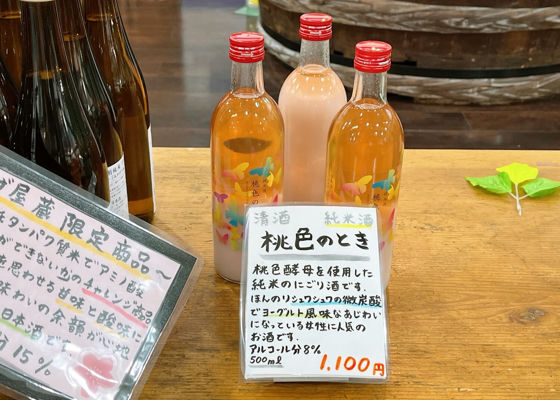 清酒 純米酒
桃色のとき
桃色酵母を使用した
純米のにごり酒です.
ほんのりシュワシュワの微炭酸
でヨーグルト風味なあじわい
になっている女性に人気の
お酒です.
アルコール分8%
500ml 1,100円
屋蔵 限定商品～
タンパク質米でアミノ酸
ができないかのチャレンジ商品
を思わせる甘味と酸味に
味わいの余韻が心地
日本酒です
分15%
桃色の